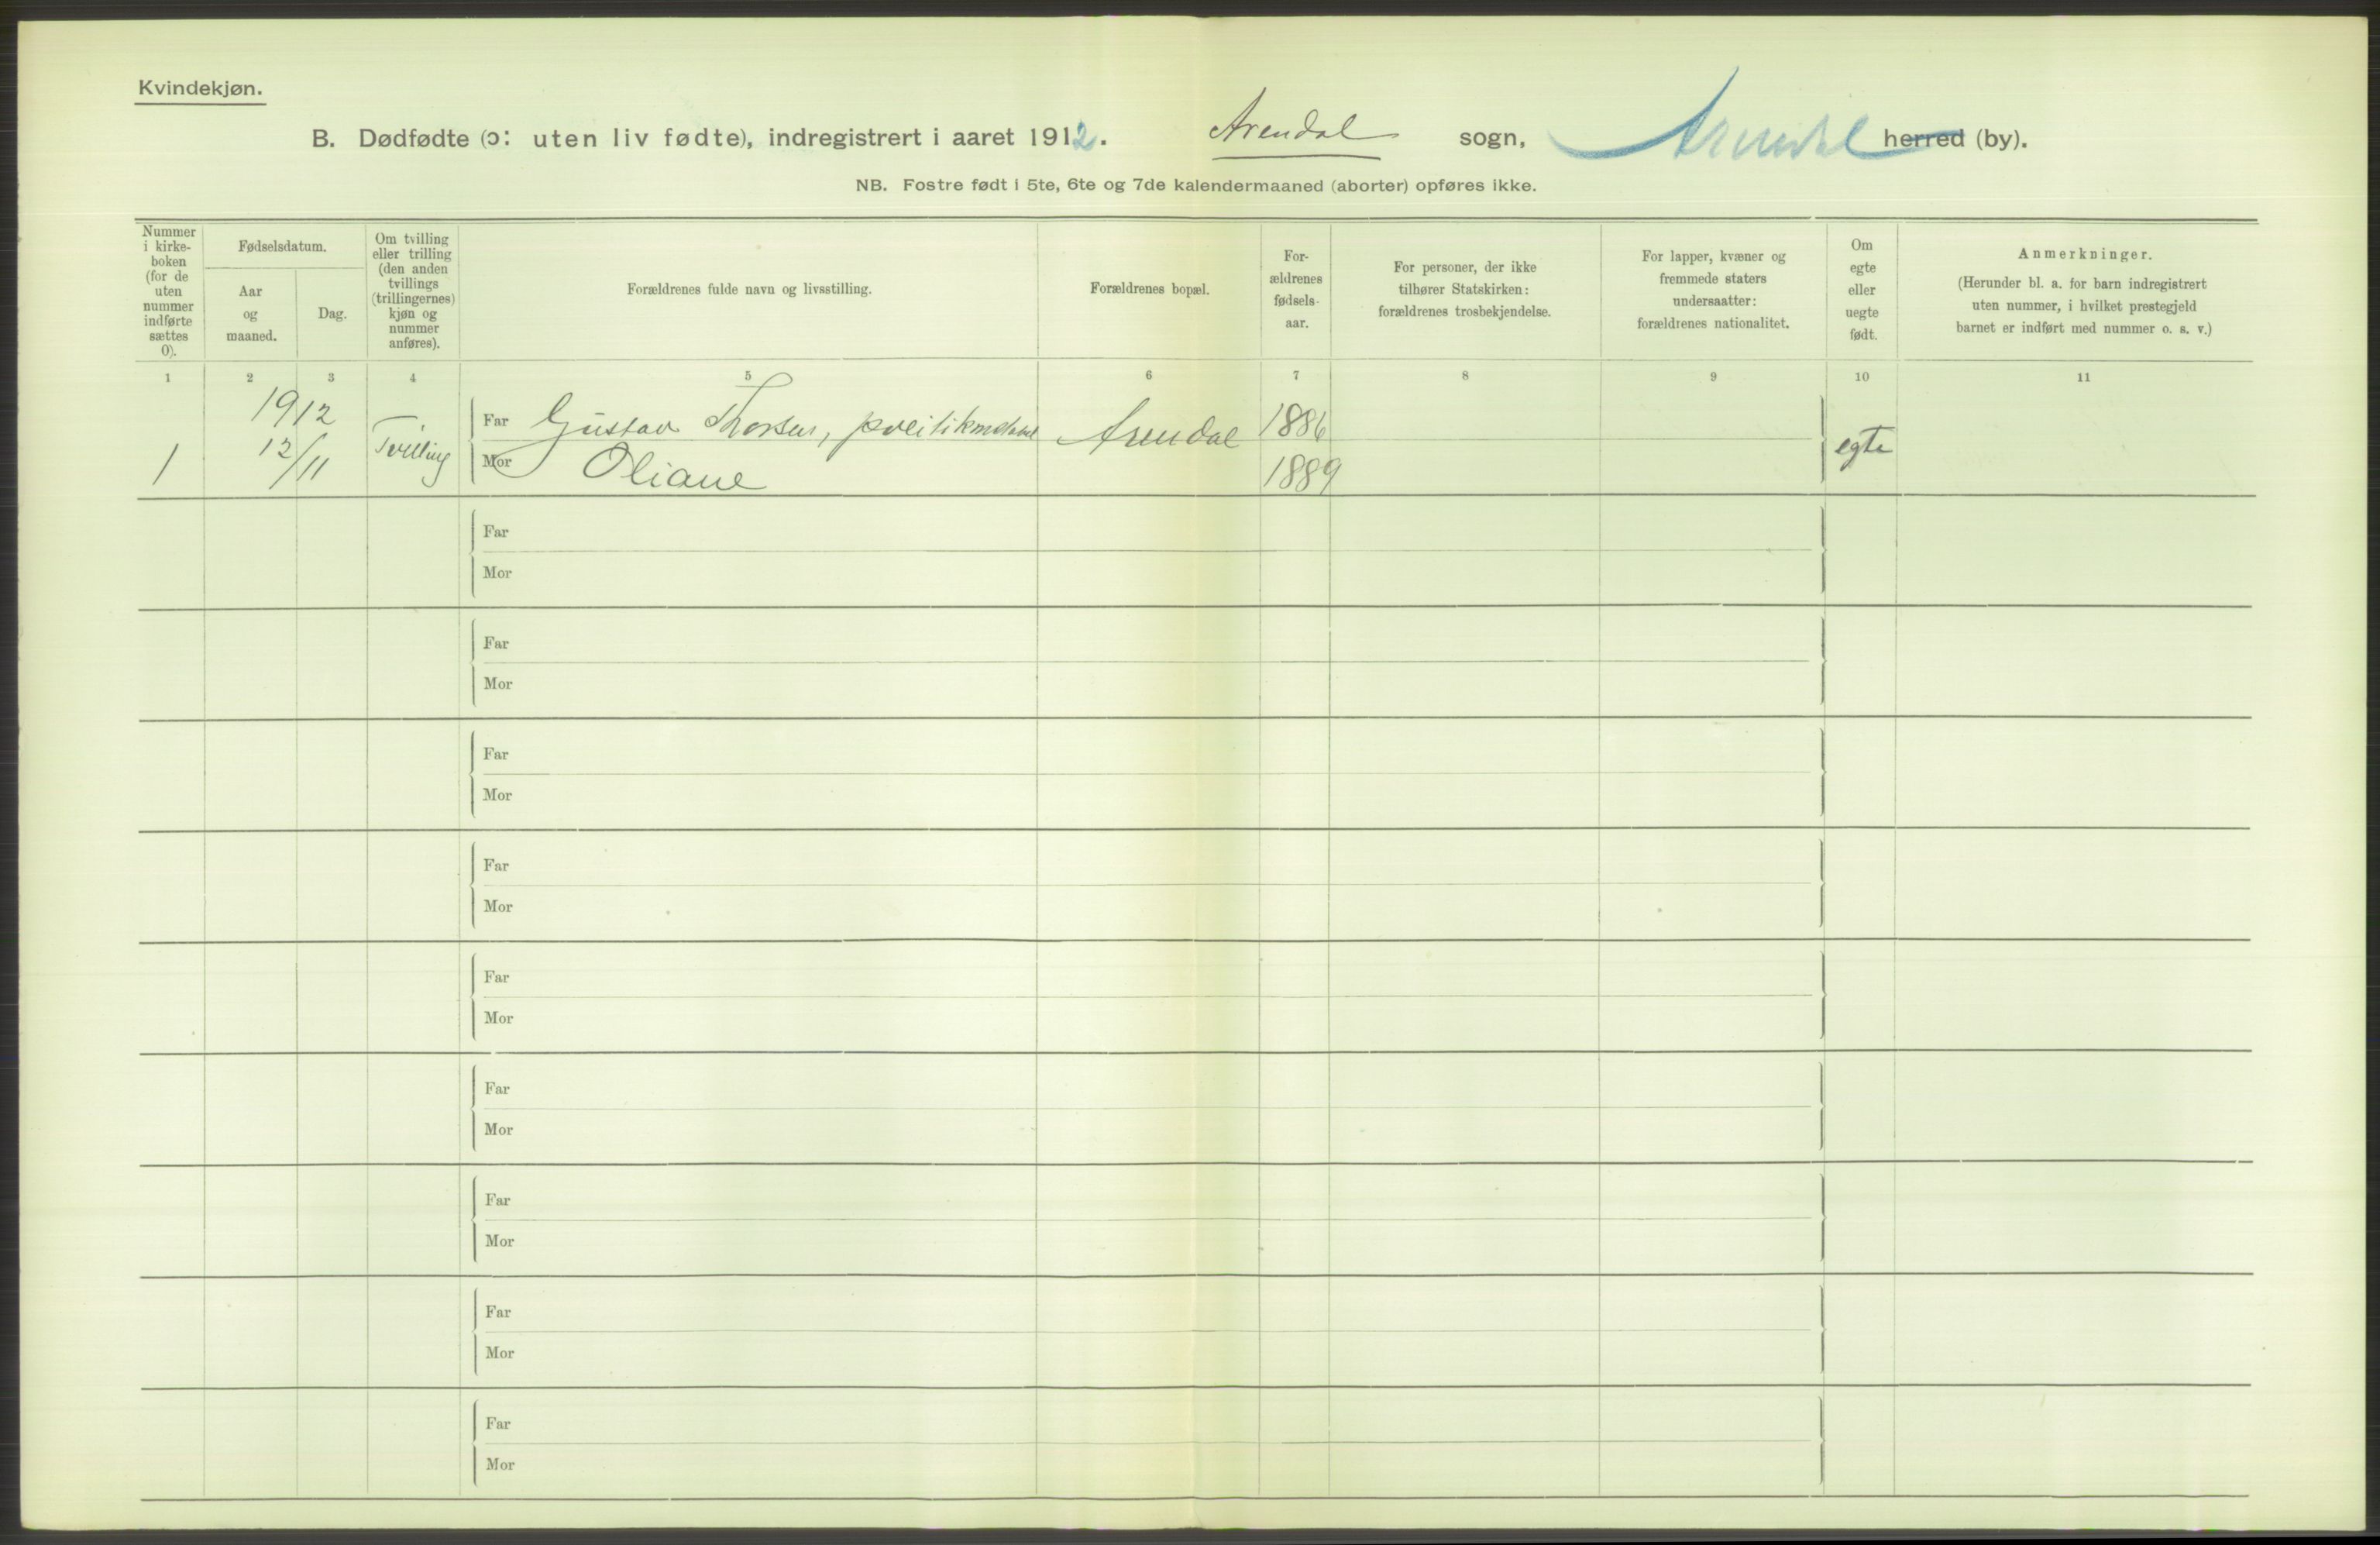 Kvindekjøn.
B. Dødfødte (ɔ: uten liv fødte), indregistrert i aaret 1912. Arendal sogn, Arendal herred (by).
NB. Fostre født i 5te, 6te og 7de kalendermaaned (aborter) opføres ikke.
Nummer i kirke-boken (for de uten nummer indførte sættes 0).
Fødselsdatum.
Aar og maaned.
Dag.
Om tvilling eller trilling (den anden tvillings (trillingernes) kjøn og nummer anføres).
Forældrenes fulde navn og livsstilling.
Forældrenes bopæl.
For-ældrenes fødsels-aar.
For personer, der ikke tilhører Statskirken: forældrenes trosbekjendelse.
For lapper, kvæner og fremmede staters undersaatter: forældrenes nationalitet.
Om egte eller uegte født.
Anmerkninger.
(Herunder bl. a. for barn indregistrert uten nummer, i hvilket prestegjeld barnet er indført med nummer o. s. v.)
1 2 3 4 5 6 7 8 9 10 11
1912
Far Gustav Thorsen, Arendal 1886
1 12/11 Tvilling egte
Mor Oliane 1889
Far
Mor
Far
Mor
Far
Mor
Far
Mor
Far
Mor
Far
Mor
Far
Mor
Far
Mor
Far
Mor